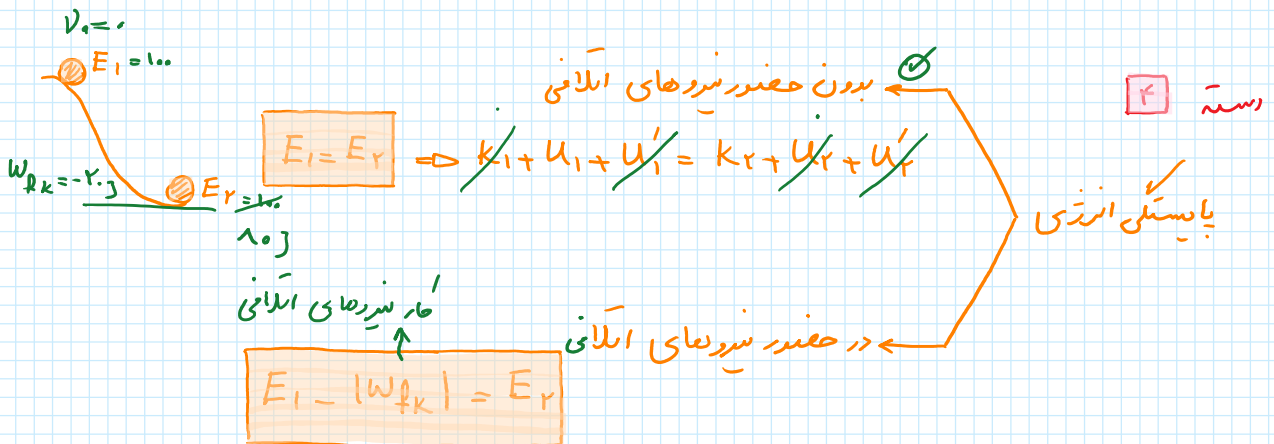 دسته ۲
پایستگی انرژی
بدون حضور نیروهای اتلافی
E₁ = E₂ ⇒ K₁ + U₁ + U′₁ = K₂ + U₂ + U′₂
در حضور نیروهای اتلافی
کار نیروهای اتلافی
E₁ - |W_fk| = E₂
V₁ = ۰
E₁ = ۱۰۰
W_fk = -۲۰J
E₂ = ۱۰۰
۸۰J